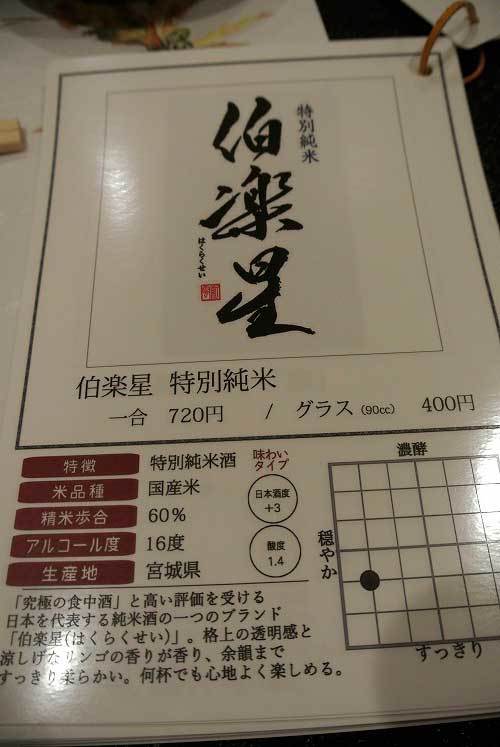 特別純米
伯楽星
はくらくせい
伯楽星 特別純米
一合 720円 / グラス(90cc) 400円
特徴 特別純米酒
米品種 国産米
精米歩合 60%
アルコール度 16度
生産地 宮城県
味わい
タイプ
日本酒度
+3
酸度
1.4
濃酵
穏やか
すっきり
「究極の食中酒」と高い評価を受ける
日本を代表する純米酒の一つのブランド
「伯楽星(はくらくせい)」。格上の透明感と
涼しげなリンゴの香りが香り、余韻まで
すっきり柔らかい。何杯でも心地よく楽しめる。